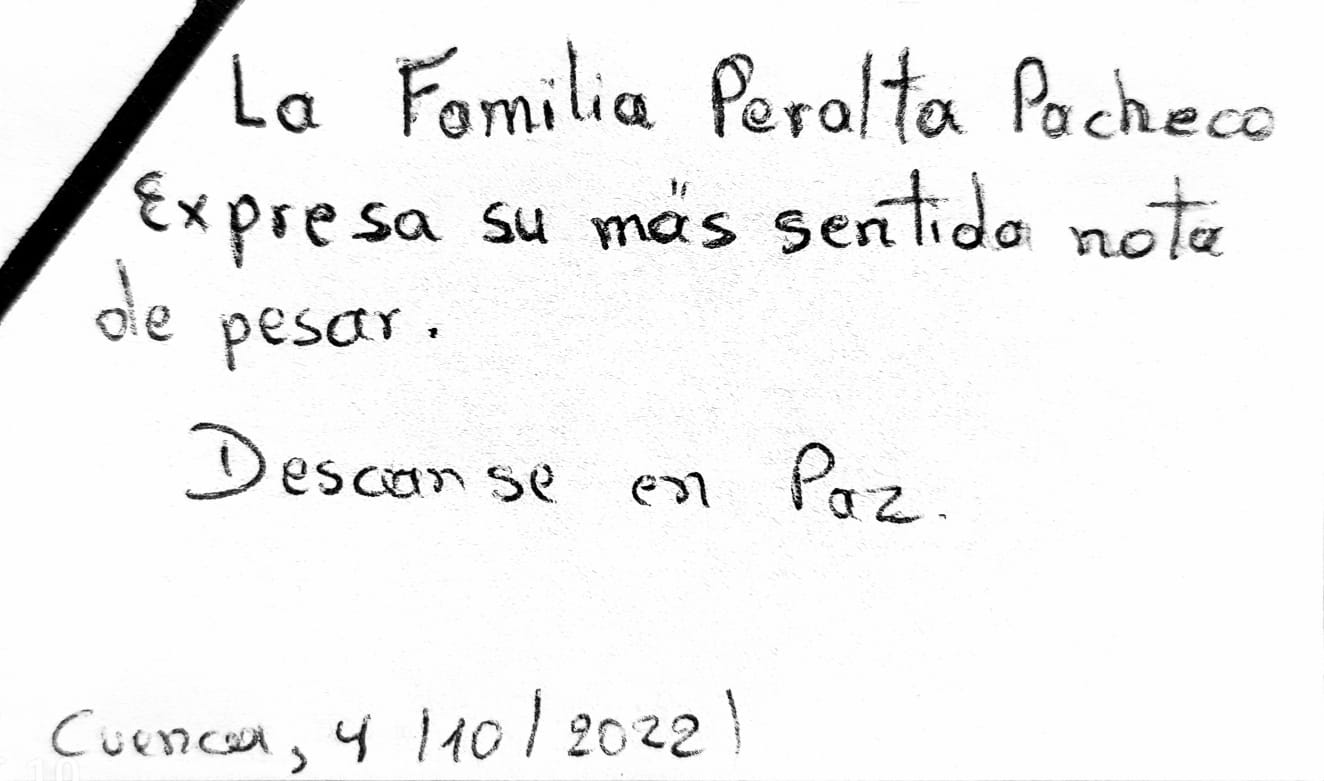 La Familia Peralta Pacheco
Expresa su más sentida nota
de pesar.
Descanse en Paz.
Cuenca, 4/10/2022/